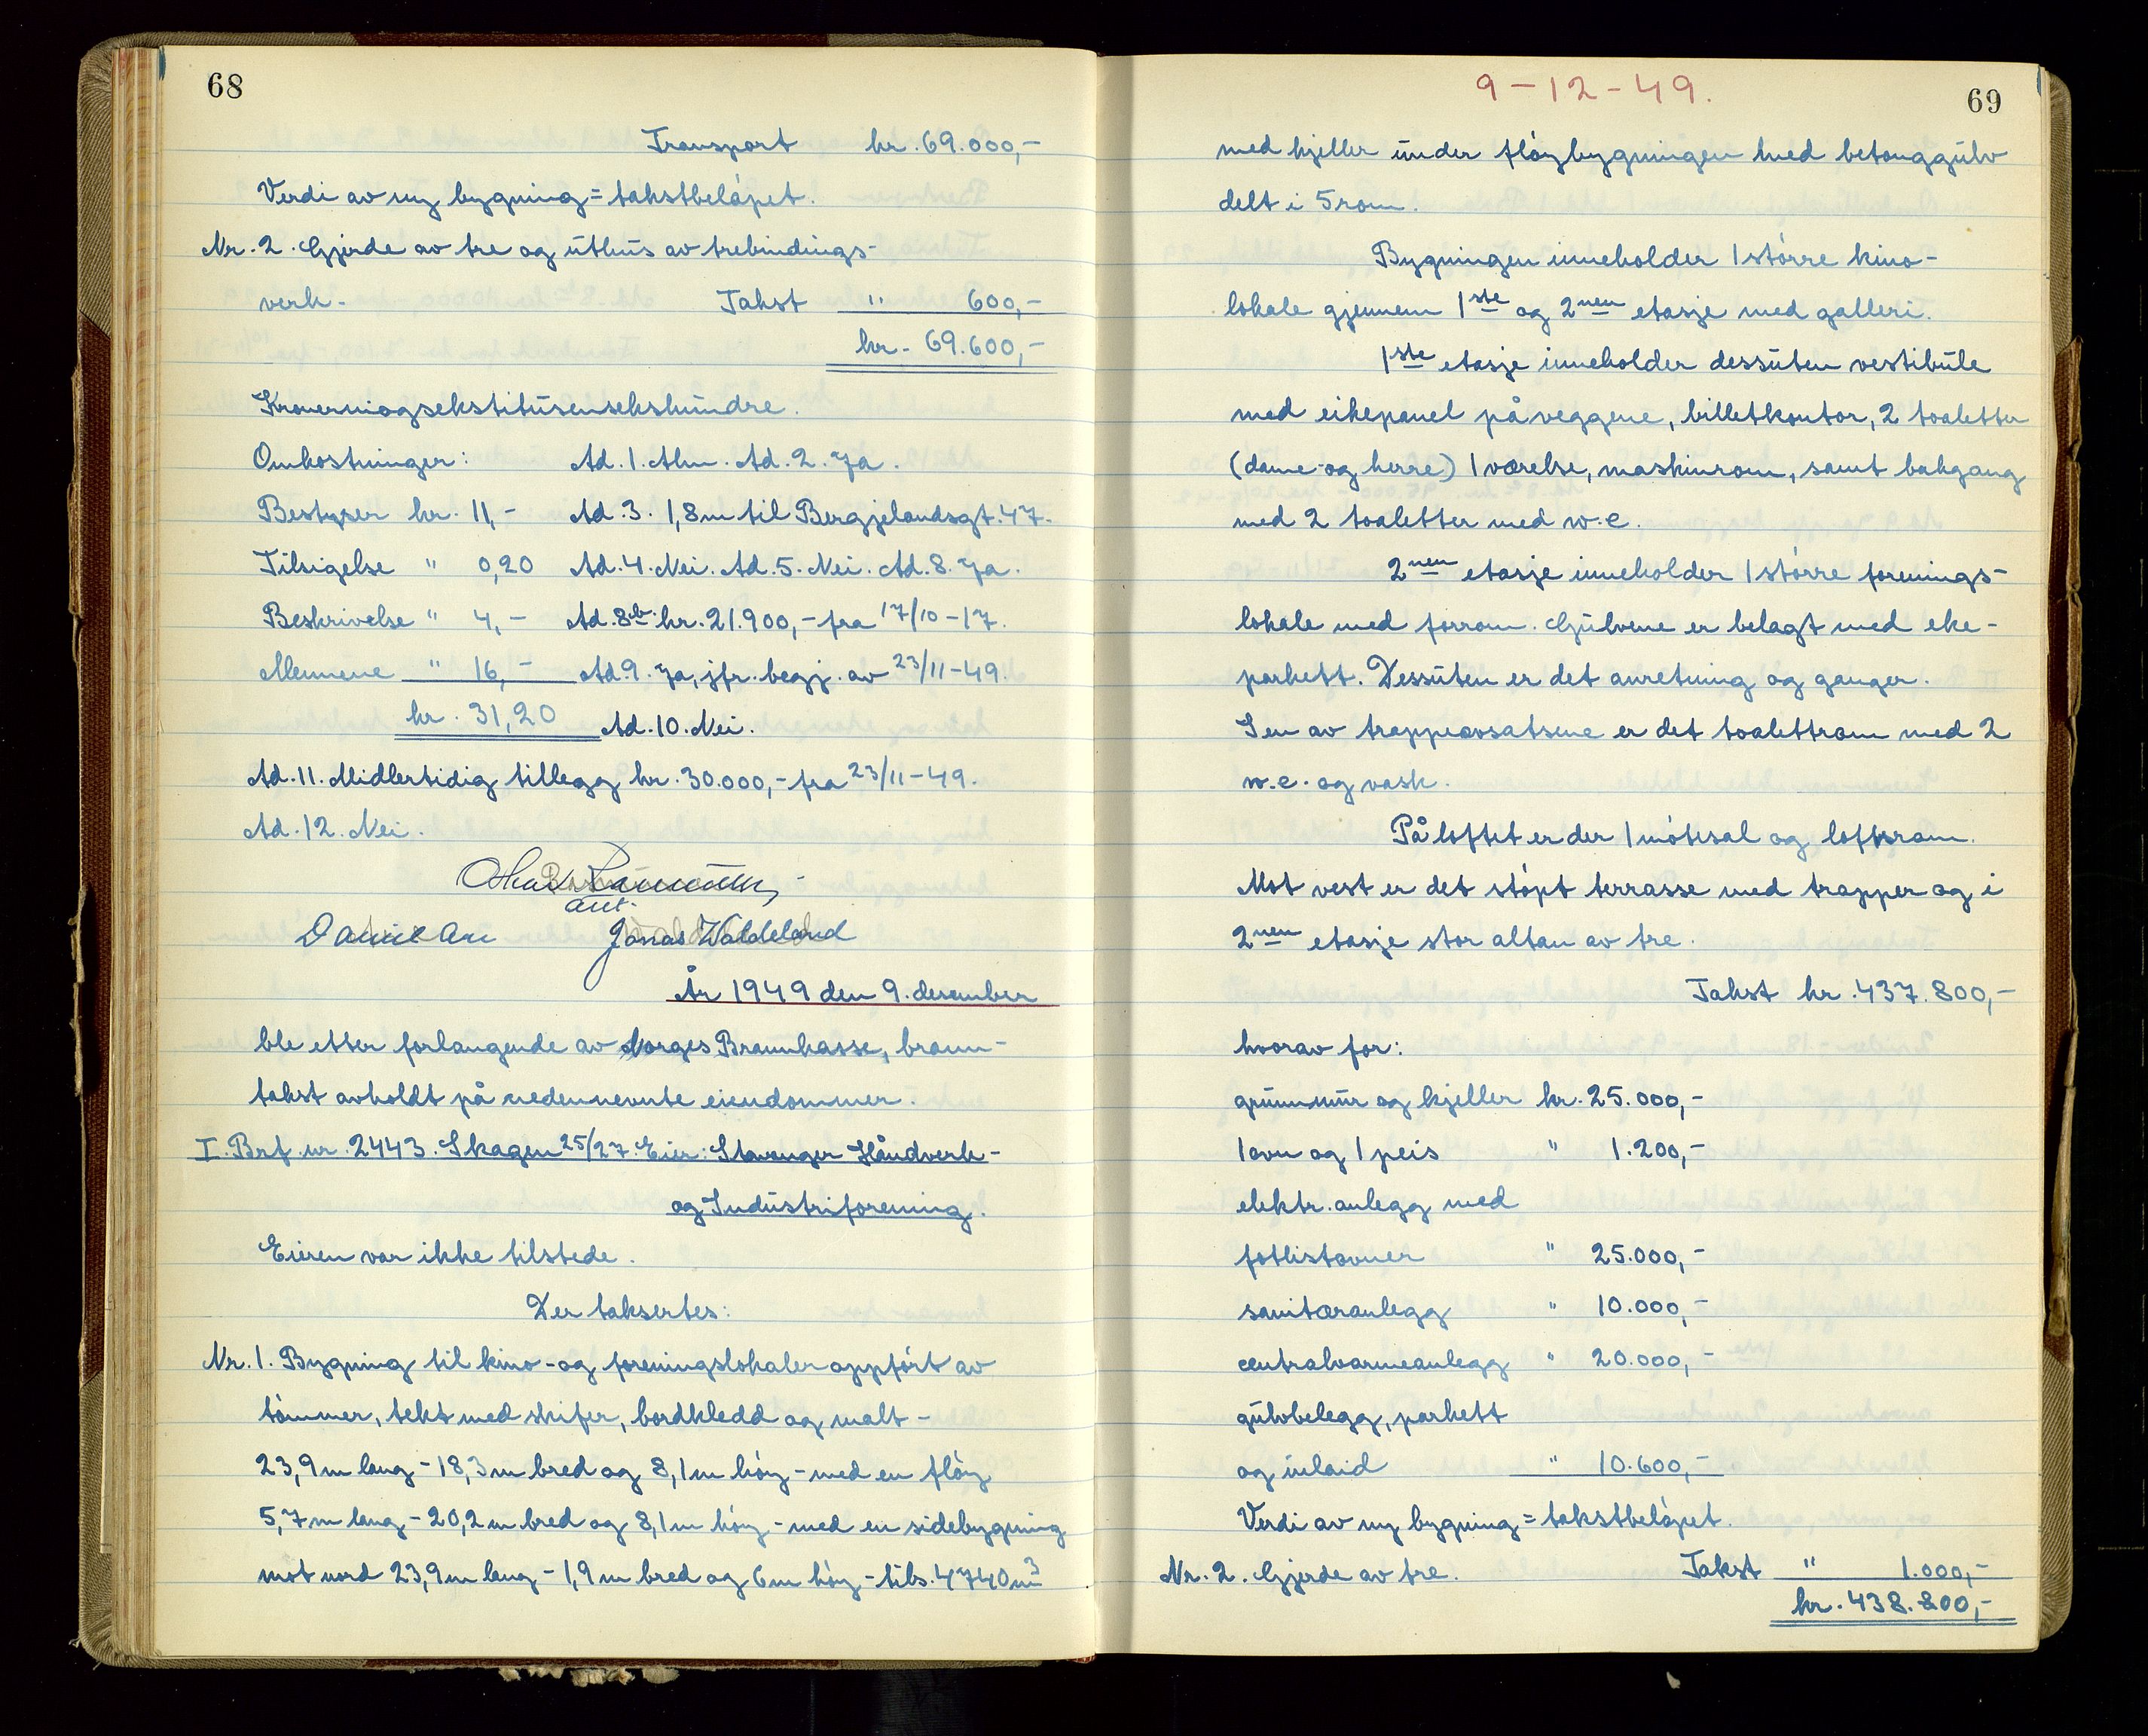 68
Transport kr. 69.000,-
Verdi av ny bygning = takstbeløpet.
Nr. 2. Gjerde av tre og uthus av trebindings-
verk - Takst " 600,-
kr. 69.600,-
Kronerniogsekstitusensekshundre.
Omkostninger: Ad. 1. Alm. Ad. 2. Ja.
Bestyrer kr. 11,- Ad. 3. 1,8 m til Bergjelandsgt. 47.
Tilsigelse " 0,20 Ad. 4. Nei. Ad. 5. Nei. Ad. 8. Ja.
Beskrivelse " 4,- Ad. 8b. kr. 21.900,- fra 17/10-17.
Mennene " 16,- Ad. 9. Ja, jfr. begj. av 23/11-49.
kr. 31,20 Ad. 10. Nei.
Ad. 11. Midlertidig tillegg kr. 30.000,- fra 23/11-49.
Ad. 12. Nei.
Jonas Waldeland
År 1949 den 9. desember
ble etter forlangende av Norges Brannkasse, brann-
takst avholdt på nedennevnte eiendommer.
I. Brf. nr. 2443. Skagen 25/27. Eier: Stavanger Håndverk-
og Industriforening.
Eieren var ikke tilstede.
Der taksertes:
Nr. 1. Bygning til kino- og foreningslokaler oppført av
tømmer, tekt med skifer, bordkledd og malt -
23,9 m lang - 18,3 m bred og 8,1 m høy - med en fløy
5,7 m lang - 20,2 m bred og 8,1 m høy - med en sidebygning
mot nord 23,9 m lang - 1,9 m bred og 6 m høy - tils. 4740 m3
9-12-49.
69
med kjeller under fløybygningen med betonggulv
delt i 5 rom.
Bygningen inneholder 1 større kino-
lokale gjennem 1ste og 2nen etasje med galleri.
1ste etasje inneholder dessuten vestibule
med eikepanel på veggene, billetkontor, 2 toaletter
(dame- og herre) 1 værelse, maskinrom, samt bakgang
med 2 toaletter med w.c.
2nen etasje inneholder 1 større forenings-
lokale med forrom. Gulvene er belagt med eke-
parkett. Dessuten er det anretning og ganger.
I en av trappeavsatsene er det toalettrom med 2
w.c. og vask.
På loftet er der 1 møtesal og loftsrom.
Mot vest er det støpt terrasse med trapper og i
2nen etasje stor altan av tre.
Takst kr. 437.800,-
hvorav for:
grunnmur og kjeller kr. 25.000,-
1 ovn og 1 peis " 1.200,-
elektr. anlegg med
fotlistovner " 25.000,-
sanitæranlegg " 10.000,-
centralvarmeanlegg " 20.000,-
gulvbelegg, parkett
og inlaid " 10.600,-
Verdi av ny bygning = takstbeløpet.
Nr. 2. Gjerde av tre. Takst " 1.000,-
kr. 438.800,-